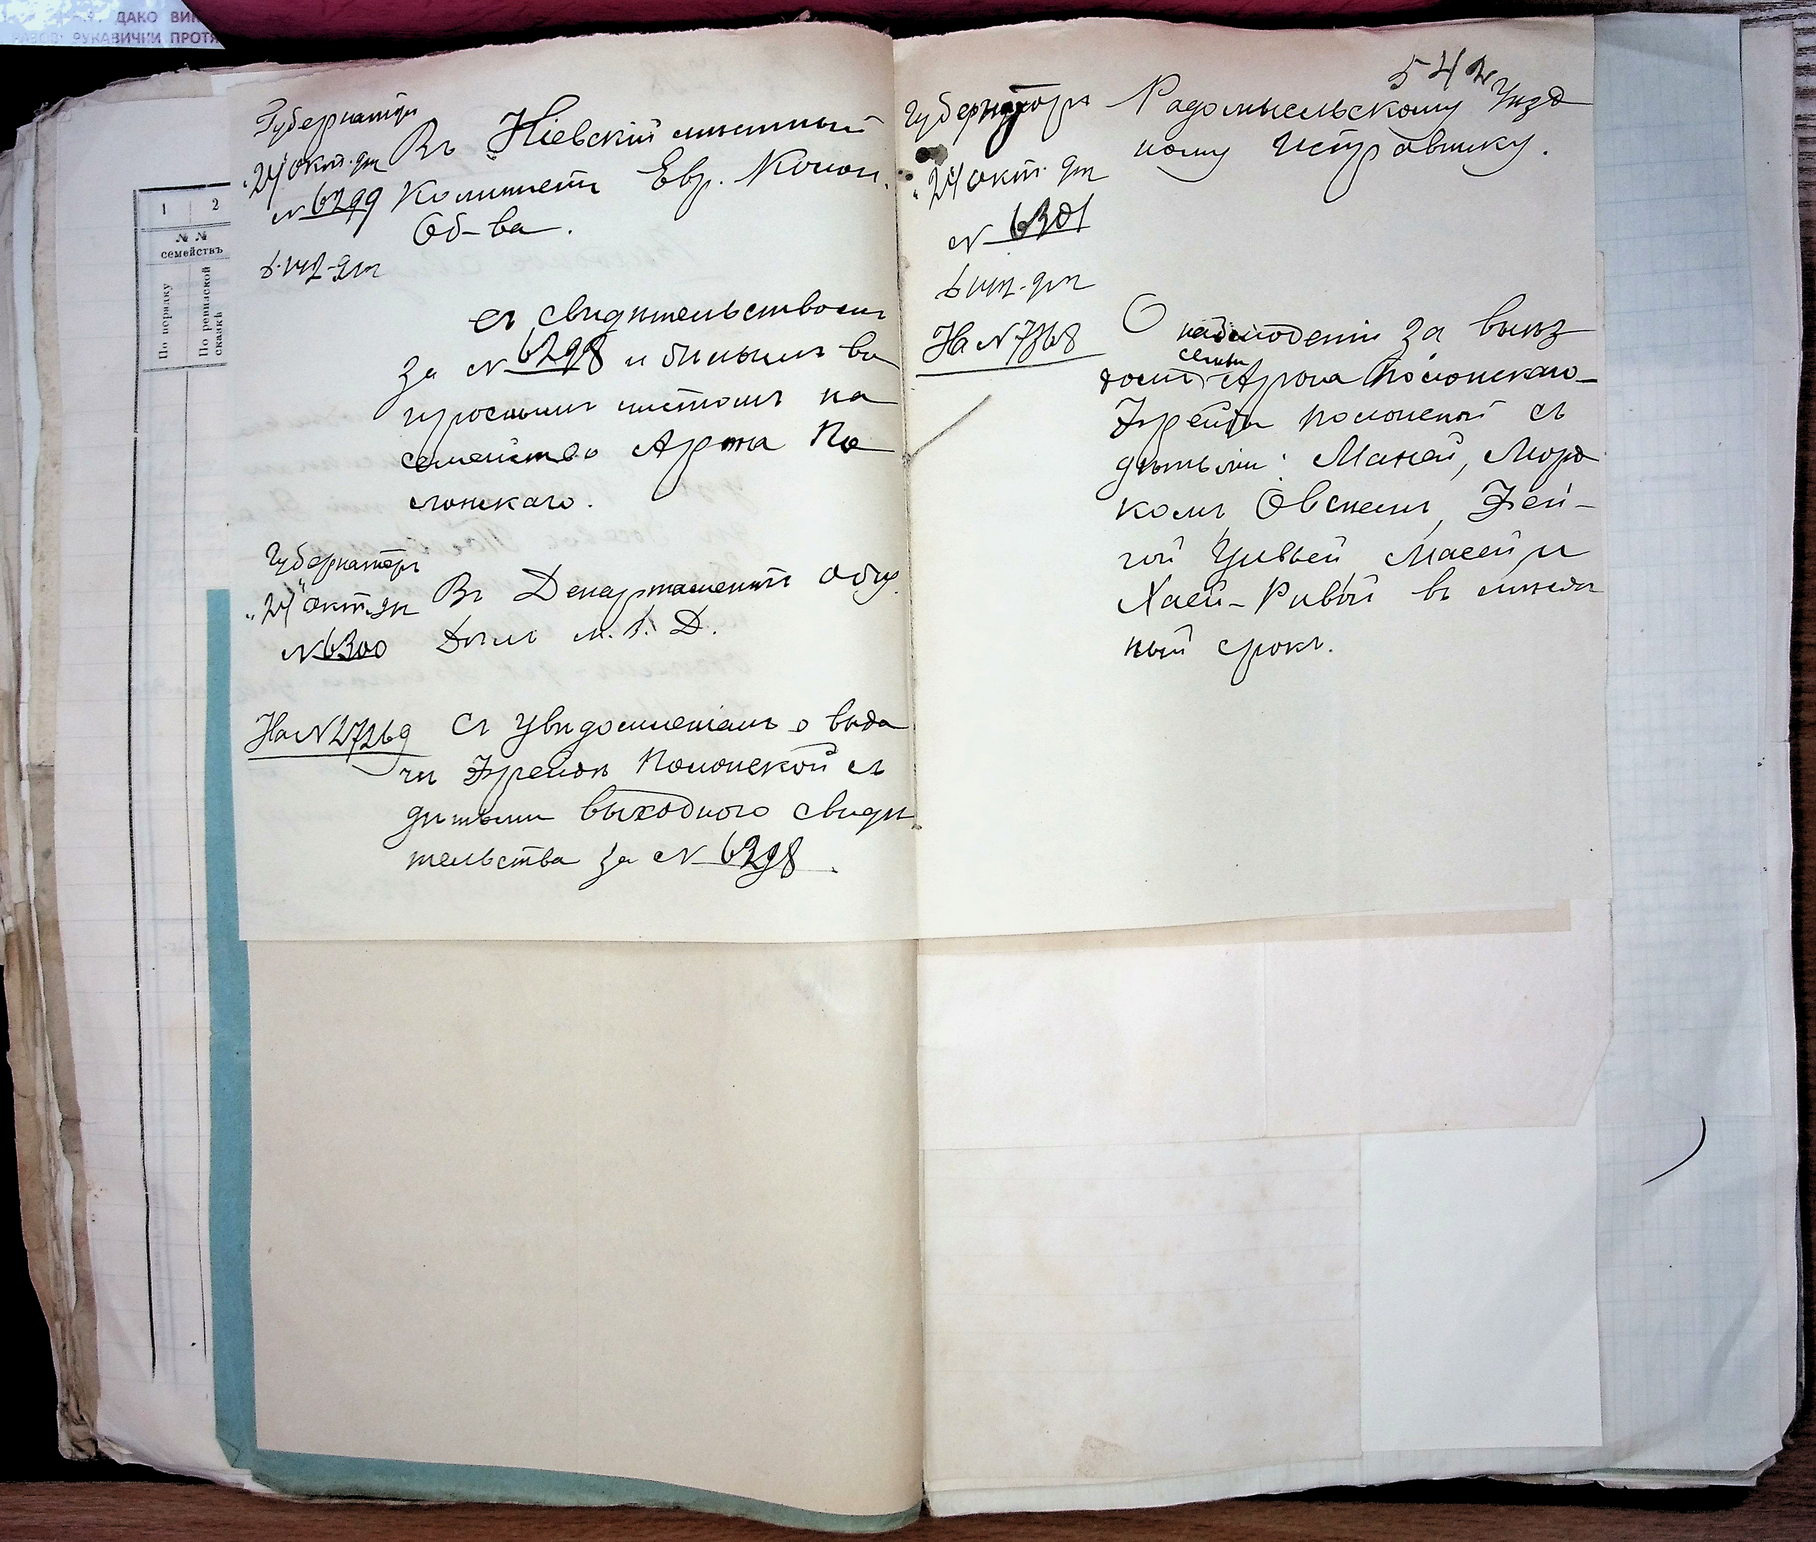 ДАКО ВИК
РУКАВИЧКИ ПРОТЯ
1 2
№ №
семействъ
По порядку
По ревизской сказкѣ
Губернаторъ
"24" окт.
№ 6299
Въ Кіевскій мѣстный
Комитетъ Евр. Колон.
Об-ва.
съ свидѣтельствомъ
за № 6298 и бѣлымъ во
проснымъ листомъ на
семейство Арона По
лонскаго.
Губернаторъ
"24" окт.
№ 6300
Въ Департаментъ Общ.
Дѣлъ М. В. Д.
На № 27269
Съ увѣдомленіемъ о выда
чѣ Эдрейзѣ Полонской съ
дѣтьми выходного свидѣ
тельства за № 6298.
542
Губернаторъ
"24" окт.
№ 6301
На № 7368
Радомысльскому Уѣзд
ному Исправнику.
О наблюденіи за выѣз
домъ семьи Арона Полонскаго
Полонской съ
дѣтьми: Маней, Морд
комъ Овсеемъ, Фей-
гой Цивьей, Масей и
Хаей-Ривой въ мѣсяч
ный срокъ.